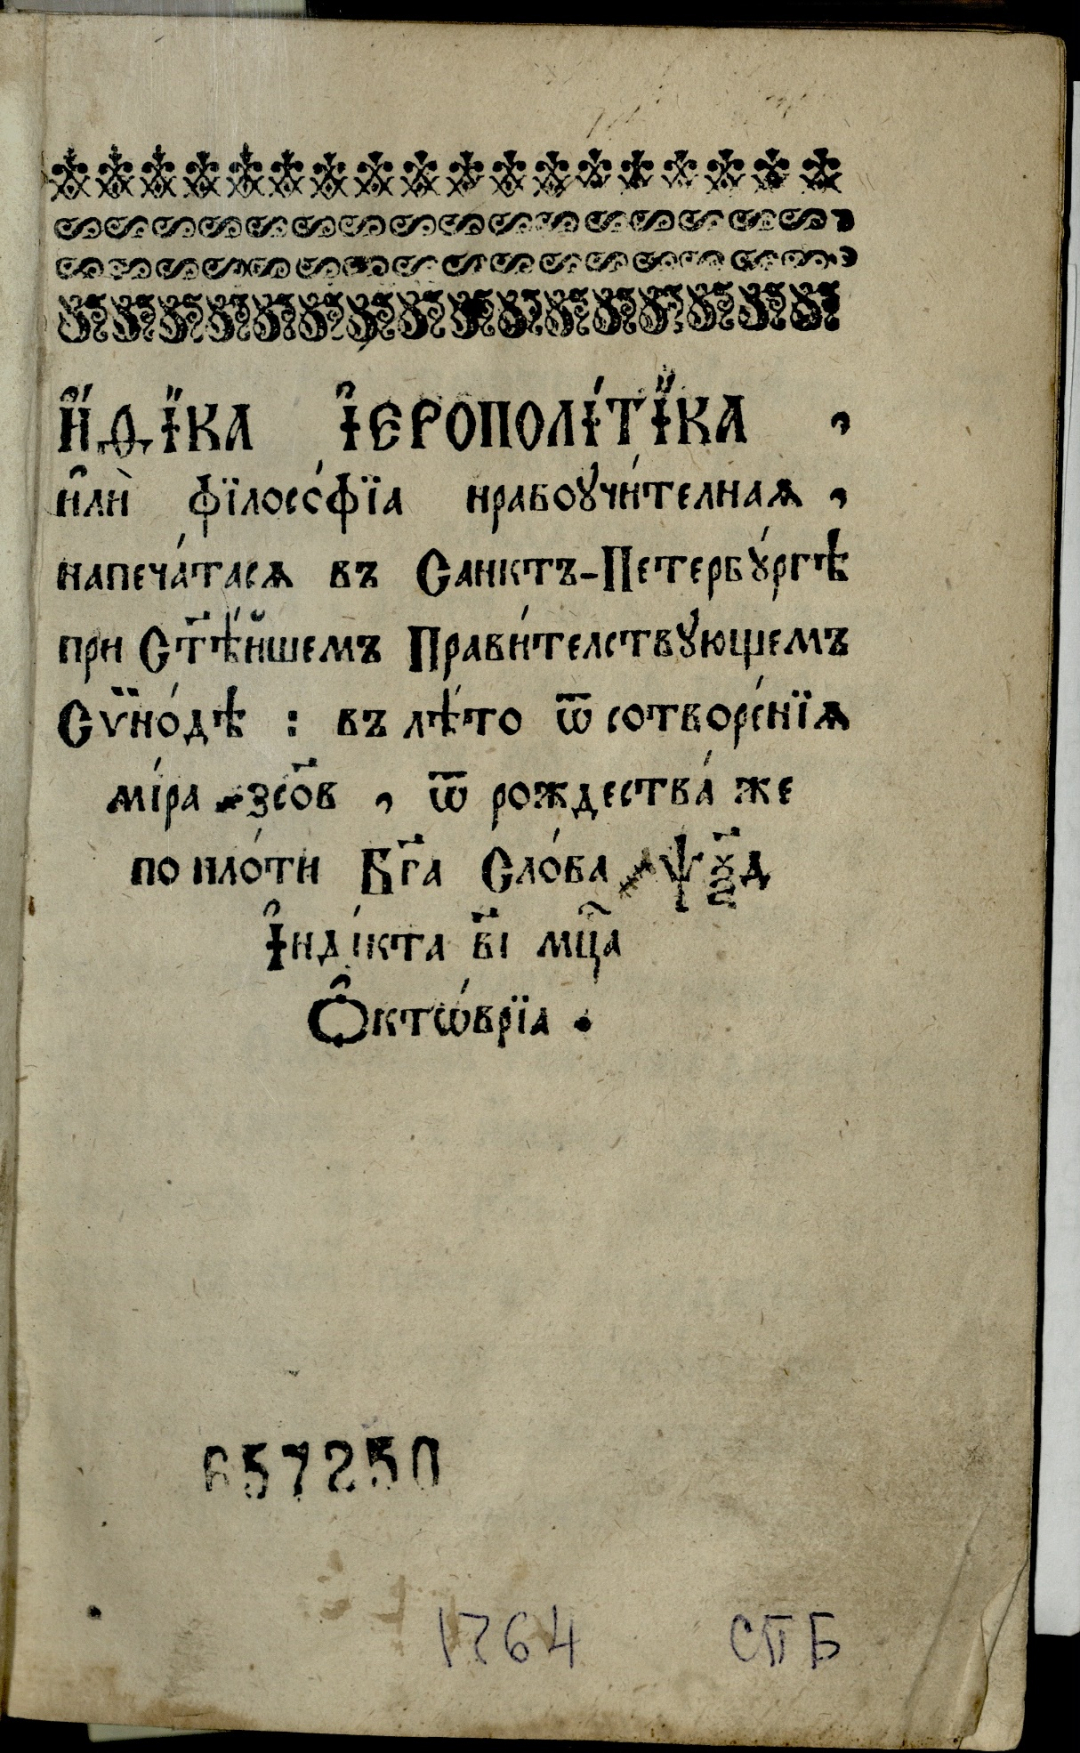 И҆́ѳїка І҆ерополі́тїка ,
и҆лѝ фїлосо́фїа нравоꙋчи́телнаѧ ,
напеча́тасѧ въ Санктъ-Петербꙋ́ргѣ
при Ст҃ѣ́йшемъ Прави́телствꙋющемъ
Сѵ̈но́дѣ : въ лѣ́то ѿ сотворе́нїѧ
мі́ра ҂зсо҃в , ѿ рождества́ же
по пло́ти Бг҃а Сло́ва ҂аѱѯ҃д
І҆нді́кта в҃і мц҃а
Ѻ҆ктѡ́врїа .
657250
1764 СПБ